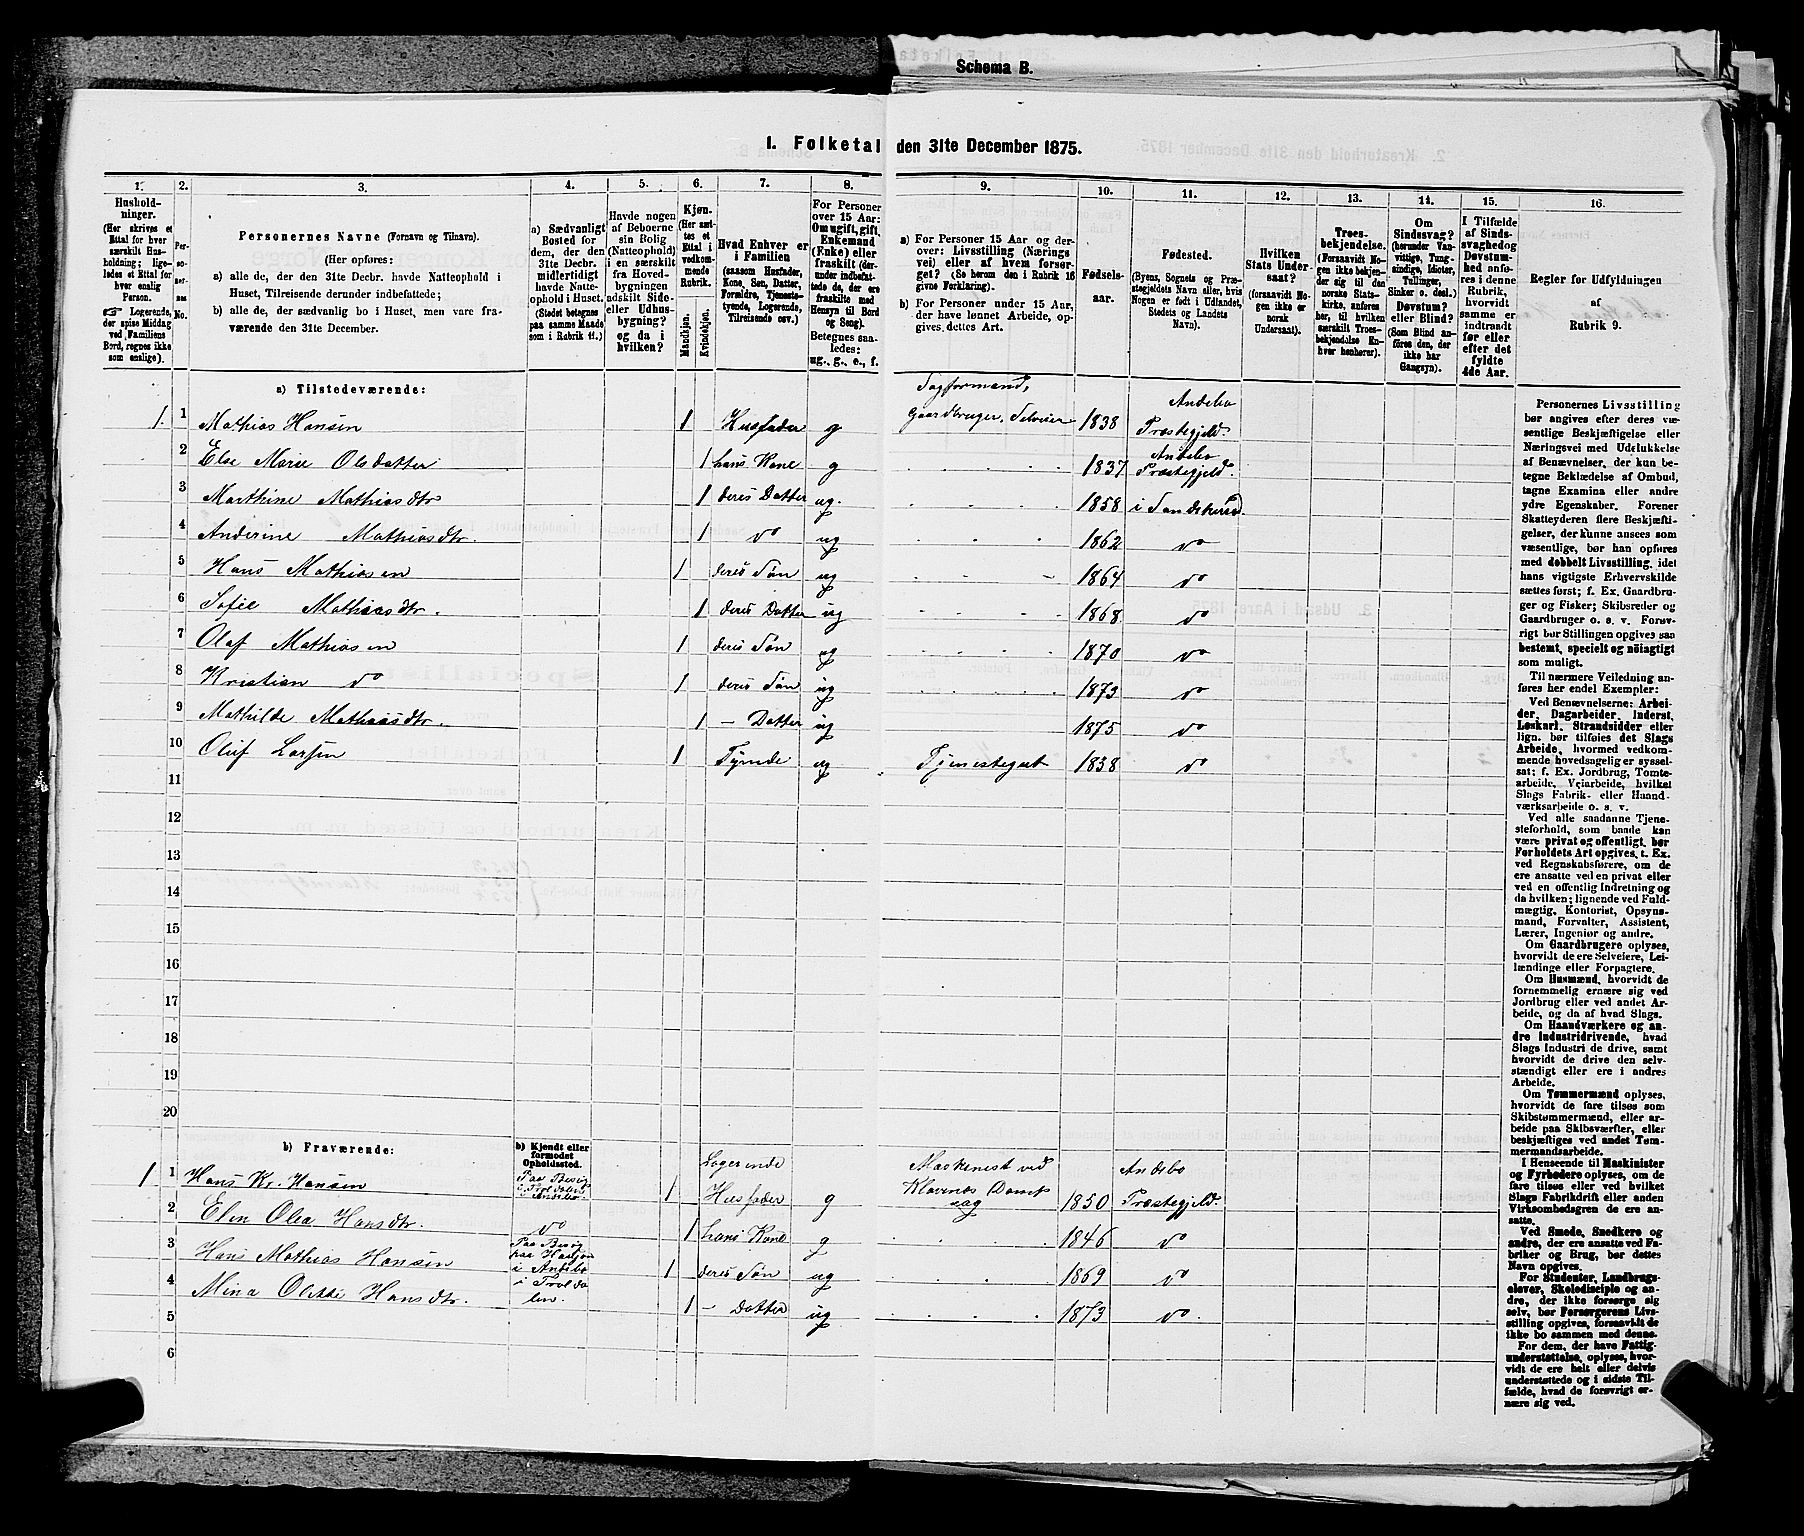 Schema B.
1. Folketal den 31te December 1875.
1. 2. 3. 4. 5. 6. 7. 8. 9. 10. 11. 12. 13. 14. 15. 16.
Husholdninger.
(Her skrives et Ettal for hver særskilt Husholdning; ligeledes et Ettal for hver enslig Person.
Logerende, der spise Middag ved Familiens Bord, regnes ikke som enslige).
Personernes No.
Personernes Navne (Fornavn og Tilnavn).
(Her opføres:
a) alle de, der den 31te Decbr. havde Natteophold i Huset, Tilreisende derunder indbefattede;
b) alle de, der sædvanlig bo i Huset, men vare fraværende den 31te December.
a) Sædvanligt Bosted for dem, der den 31te Decbr. midlertidigt havde Natteophold i Huset. (Stedet betegnes paa samme Maade som i Rubrik 11.)
Havde nogen af Beboerne sin Bolig (Natteophold) i en særskilt fra Hovedbygningen adskilt Side- eller Udhusbygning? og da i hvilken?
Kjøn. (Her sættes et Ettal i vedkommende Rubrik.
Mandkjøn. Kvindekjøn.
Hvad Enhver er i Familien
(saasom Husfader, Kone, Søn, Datter, Forældre, Tjenestetyende, Logerende, Tilreisende osv.)
For Personer over 15 Aar: Om ugift, gift, Enkemand (Enke) eller fraskilt (derunder indbefattede de, der ere fraskilte med Hensyn til Bord og Seng). Betegnes saaledes: ug., g., e., f.
a) For Personer 15 Aar og derover: Livsstilling (Næringsvei) eller af hvem forsørget? (Se herom den i Rubrik 16 givne Forklaring).
b) For Personer under 15 Aar, der have lønnet Arbeide, opgives dettes Art.
Fødselsaar.
Fødested.
(Byens, Sognets og Præstegjeldets Navn eller, hvis Nogen er født i Udlandet, Stedets og Landets Navn).
Hvilken Stats Undersaat? (forsaavidt Nogen ikke er norsk Undersaat).
Troesbekjendelse. (Forsaavidt Nogen ikke bekjender sig til den norske Statskirke, anføres her, til hvilken særskilt Troesbekjendelse Enhver henhører).
Om Sindssvag? (herunder Vanvittige, Tungsindige, Idioter, Tullinger, Sinker o. desl.) Døvstum? eller Blind? (Som Blind anføres den, der ikke har Gangsyn).
I Tilfælde af Sindssvaghed og Døvstumhed anføres i denne Rubrik, hvorvidt samme er indtraadt før eller efter det fyldte 4de Aar.
Regler for Udfyldningen af Rubrik 9.
a) Tilstedeværende:
1. 1 Mathias Hansen 1 Husfader g Sagformand, Gaardbruger, Selveier 1838 Andebo Præstegjeld.
2 Else Marie Olsdatter 1 hans Kone g 1837 Andebo Præstegjeld
3 Marthine Mathiasdtr 1 deres Datter ug. 1858 i Sandeherred
4 Anderine Mathiasdtr. 1 do ug 1862 do
5 Hans Mathiasen 1 deres Søn ug 1864 do
6 Sofie Mathiasdtr. 1 deres Datter ug 1868 do
7 Olaf Mathiasen 1 deres Søn ug 1870 do
8 Kristian do 1 deres Søn ug 1873 do
9 Mathilde Mathiasdtr. 1 – Datter ug 1875 do
10 Oluf Larsen 1 Tyende ug Tjenestegut 1838 do
11
12
13
14
15
16
17
18
19
20
b) Fraværende:
b) Kjendt eller formodet Opholdssted.
1 1 Hans Kr. Hansen Paa Besøg i Trolddalen Andebo 1 Logerende Husfader g Maskenest ved Klavenes Damsag 1850 Andebo Præstegjeld.
2 Elen Olea Hansdtr. do 1 hans Kone g 1846 do
3 Hans Mathias Hansen Paa Besøg paa i Andebo 1 deres Søn ug 1869 do
4 Mina Olette Hansdtr. i Trolddalen. 1 – Datter ug 1873 do.
5
6
Personernes Livsstilling
bør angives efter deres væsentlige
Beskjæftigelse eller
Næringsvei med Udelukkelse
af Benævnelser, der kun betegne
Beklædelse af Ombud,
tagne Examina eller andre
ydre Egenskaber. Forener
Skatteyderen flere Beskjæftigelser,
der kunne ansees som
væsentlige, bør han opføres
med dobbelt Livsstilling, idet
hans vigtigste Erhvervskilde
sættes først; f. Ex. Gaardbruger
og Fisker; Skibsreder og
Gaardbruger o. s. v. Forøvrigt
bør Stillingen opgives saa
bestemt, specielt og nöiagtigt
som muligt.
Til nærmere Veiledning anføres
her endel Exempler:
Ved Benævnelserne: Arbeider,
Dagarbeider, Inderst,
Løskarl, Strandsidder eller
lign. bør tilføies det Slags
Arbeide, hvormed vedkommende
hovedsagelig er sysselsat;
f. Ex. Jordbrug, Tomtearbeide,
Veiarbeide, hvilket
Slags Fabrik- eller Haandværksarbeide
o. s. v.
Ved alle saadanne Tjenesteforhold,
som baade kan
være privat og offentligt, bør
Forholdets Art opgives, t. Ex.
ved Regnskabsførere, om de
ere ansatte ved en privat eller
ved en offentlig Indretning og
da hvilken; lignende ved Fuldmægtig,
Kontorist, Opsynsmand,
Forvalter, Assistent,
Lærer, Ingeniør og andre.
Om Gaardbrugere oplyses,
hvorvidt de ere Selveiere, Leilændinge
eller Forpagtere.
Om Husmænd, hvorvidt de
fornemmelig ernære sig ved
Jordbrug eller ved andet Arbeide,
og da af hvad Slags.
Om Haandværkere og andre
Industridrivende, hvad
Slags Industri de drive, samt
hvorvidt de drive den selvstændigt
eller ere i andres
Arbeide.
Om Tømmermænd oplyses,
hvorvidt de fare tilsøs som
Skibstømmermænd, eller arbeide
paa Skibsværfter, eller
beskjæftiges ved andet Tømmermandsarbeide.
I Henseende til Maskinister
og Fyrbødere oplyses, om de
fare tilsøs eller ved hvilket
Slags Fabrikdrift eller anden
Virksomhedsgren de ere ansatte.
Ved Smede, Snedkere og
andre, der ere ansatte ved Fabriker
og Brug, bør dettes
Navn opgives.
For Studenter, Landbrugselever,
Skoledisciple og andre,
der ikke forsørge sig
selv, bør Forsørgerens Livsstilling
opgives, forsaavidt de
ikke bo sammen med denne.
For dem, der have Fattigunderstøttelse,
oplyses, hvorvidt
de ere helt eller delvis
understøttede og i sidste Tilfælde,
hvad de forøvrigt ernære
sig ved.